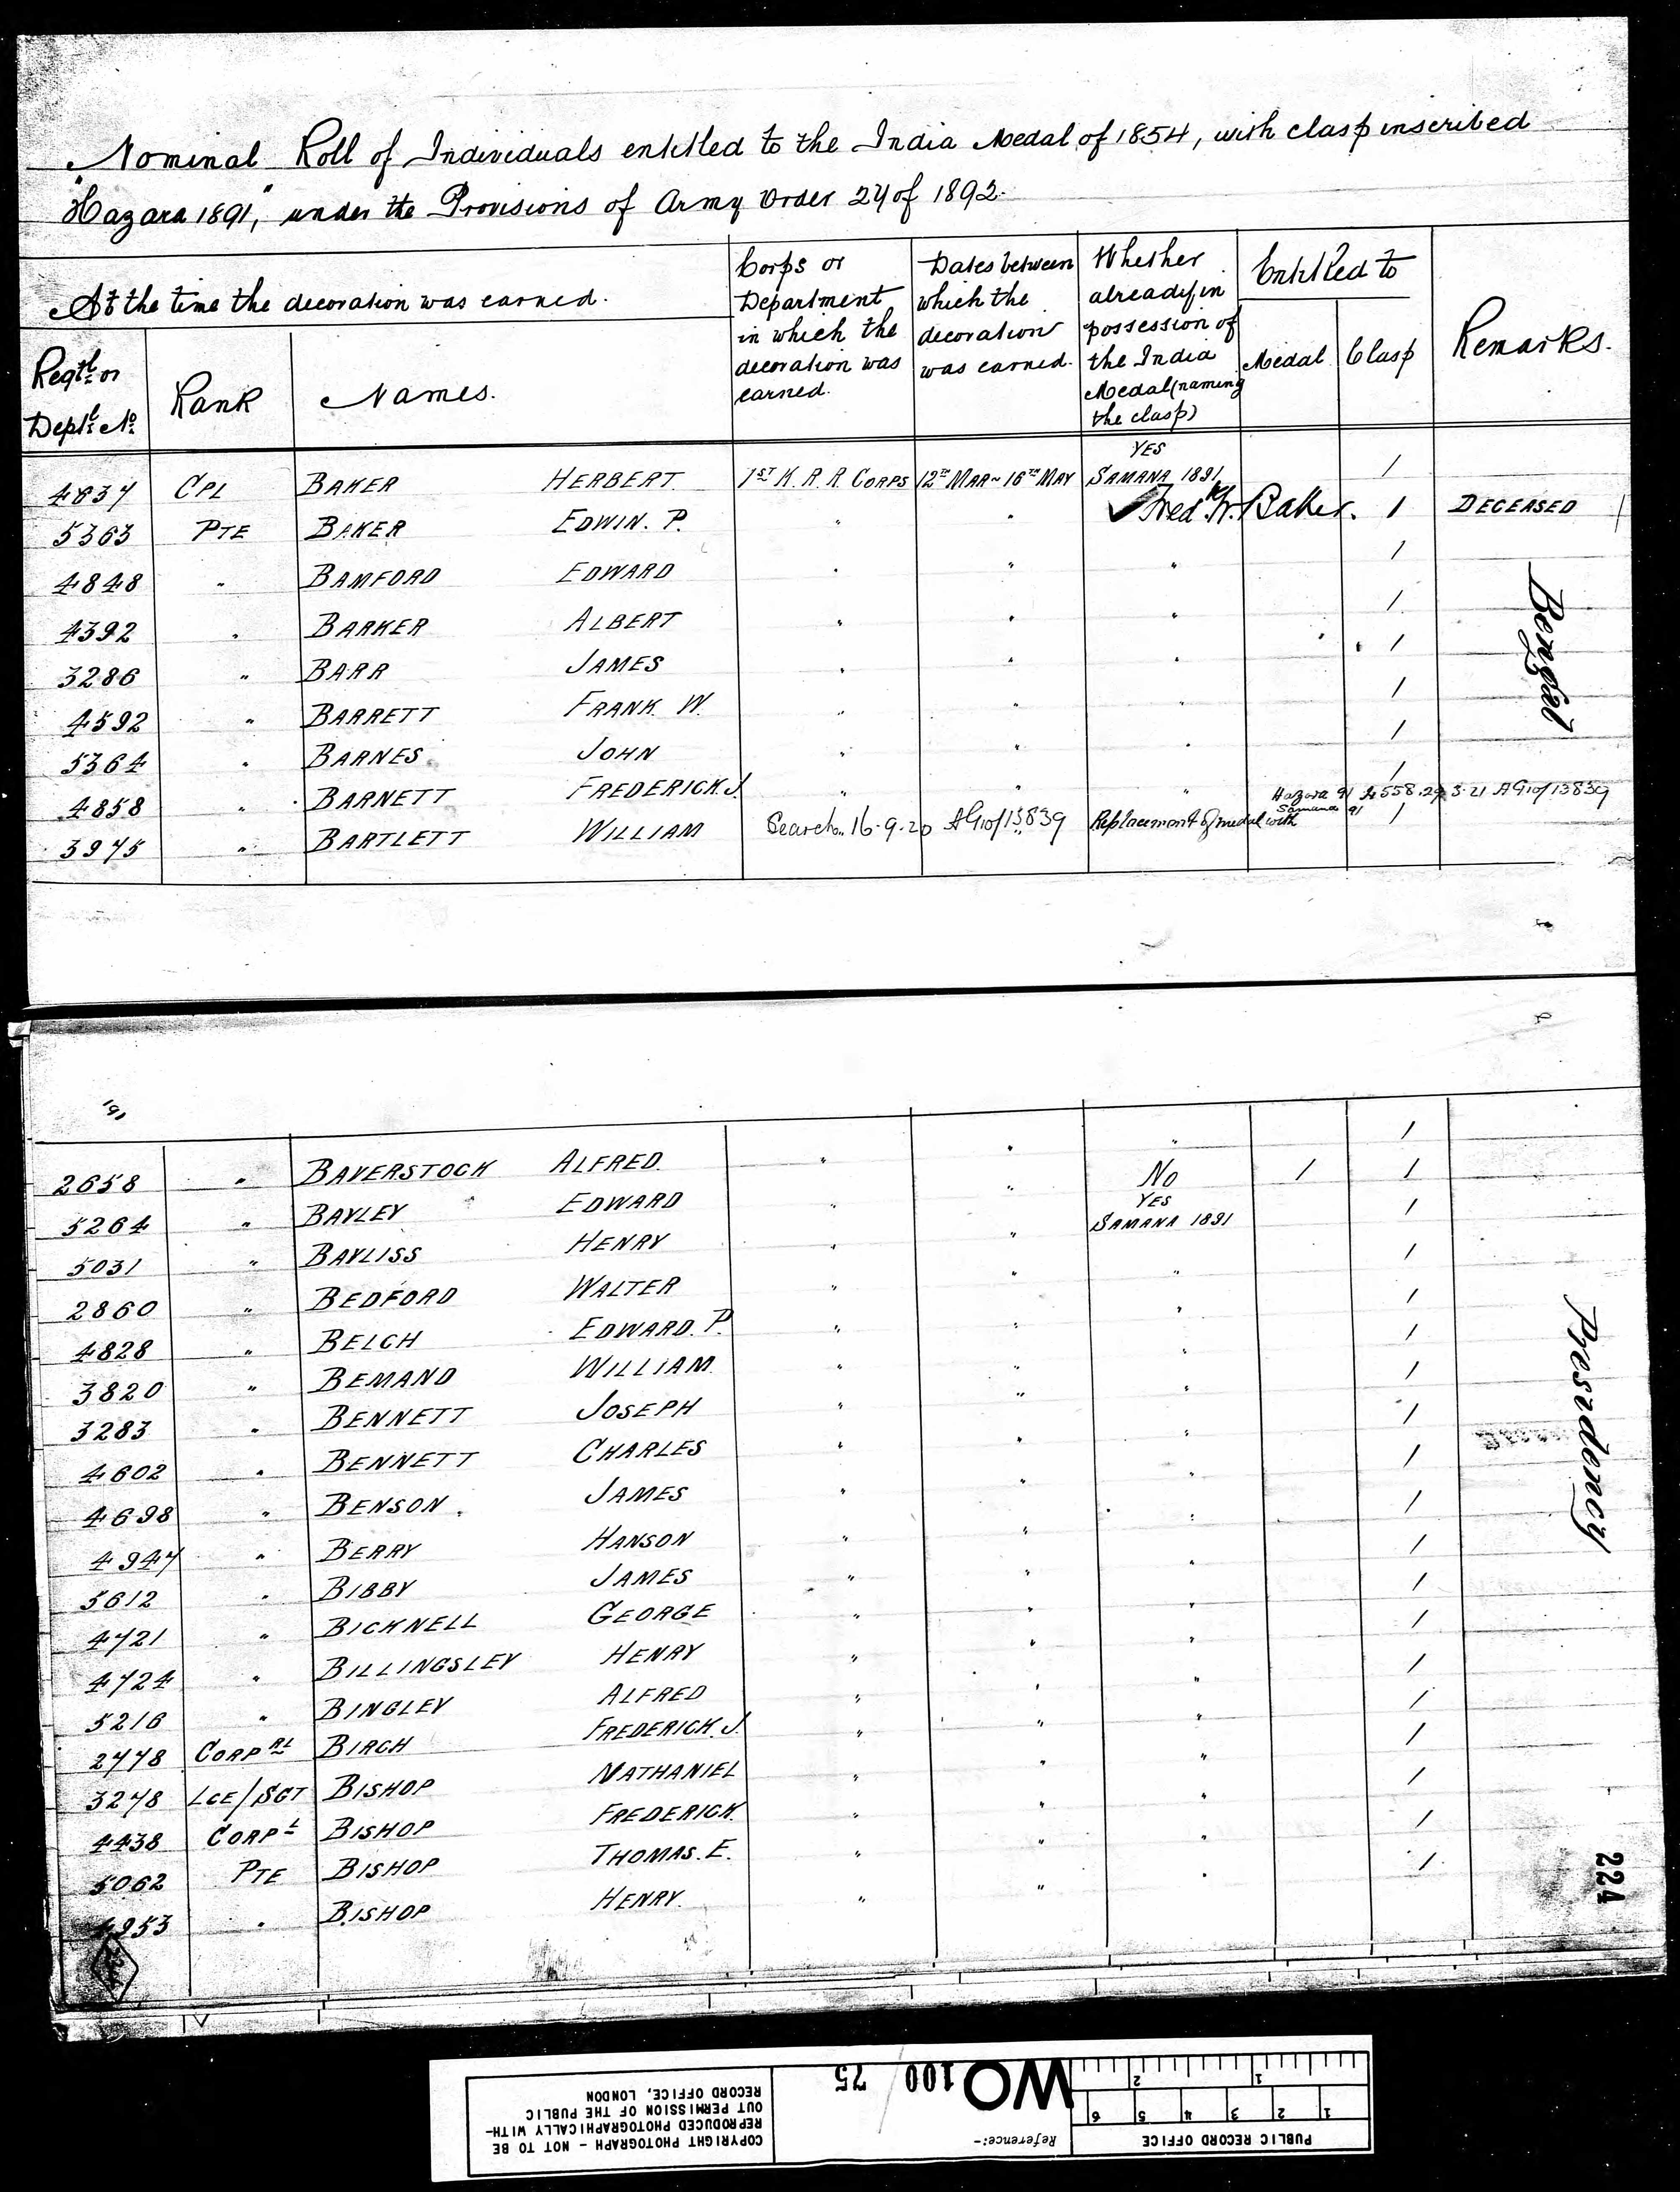 Nominal Roll of Individuals entitled to the India Medal of 1854, with clasp inscribed
"Hazara 1891," under the Provisions of Army Order 24 of 1892.
At the time the decoration was earned.
Corps or Department in which the decoration was earned.
Dates between which the decoration was earned.
Whether already in possession of the India Medal (naming the clasp)
Entitled to
Regtl or Deptl No
Rank
Names.
Medal
Clasp
Remarks.
4837 CPL BAKER HERBERT 1ST K.R.R. CORPS 12TH MAR ~ 16TH MAY YES SAMANA 1891 1
5363 PTE BAKER EDWIN. P. " " Fred. W. Baker. 1 DECEASED
4848 " BAMFORD EDWARD " " " 1
4392 " BARKER ALBERT " " " 1
3286 " BARR JAMES " " " 1
4592 " BARRETT FRANK. W. " " " 1
5364 " BARNES JOHN " " " 1
4858 " BARNETT FREDERICK J. " " " 1
Hazara 91 558.29.3.21 AG10/13839
Samana 91
3975 " BARTLETT WILLIAM Search. 16.9.20 AG10/13839 Replacement of medal with 1
Bengal
2658 " BAVERSTOCK ALFRED. " " " 1
5264 " BAYLEY EDWARD " " NO 1 1
5031 " BAYLISS HENRY " " YES SAMANA 1891 1
2860 " BEDFORD WALTER " " " 1
4828 " BELCH EDWARD. P. " " " 1
3820 " BEMAND WILLIAM " " " 1
3283 " BENNETT JOSEPH " " " 1
4602 " BENNETT CHARLES " " " 1
4698 " BENSON. JAMES " " " 1
4947 " BERRY HANSON " " " 1
5612 " BIBBY JAMES " " " 1
4721 " BICKNELL GEORGE " " " 1
4724 " BILLINGSLEY HENRY " " " 1
5216 " BINGLEY ALFRED " " " 1
2778 CORPRL BIRCH FREDERICK. J. " " " 1
3278 LCE/SGT BISHOP NATHANIEL " " " 1
4438 CORPL BISHOP FREDERICK. " " " 1
5062 PTE BISHOP THOMAS. E. " " " 1
4953 " BISHOP HENRY. " " " 1
Presidency
224
PUBLIC RECORD OFFICE
1 2 3 4 5 6
1 2
Reference:-
WO 100 / 75
COPYRIGHT PHOTOGRAPH - NOT TO BE
REPRODUCED PHOTOGRAPHICALLY WITH-
OUT PERMISSION OF THE PUBLIC
RECORD OFFICE, LONDON